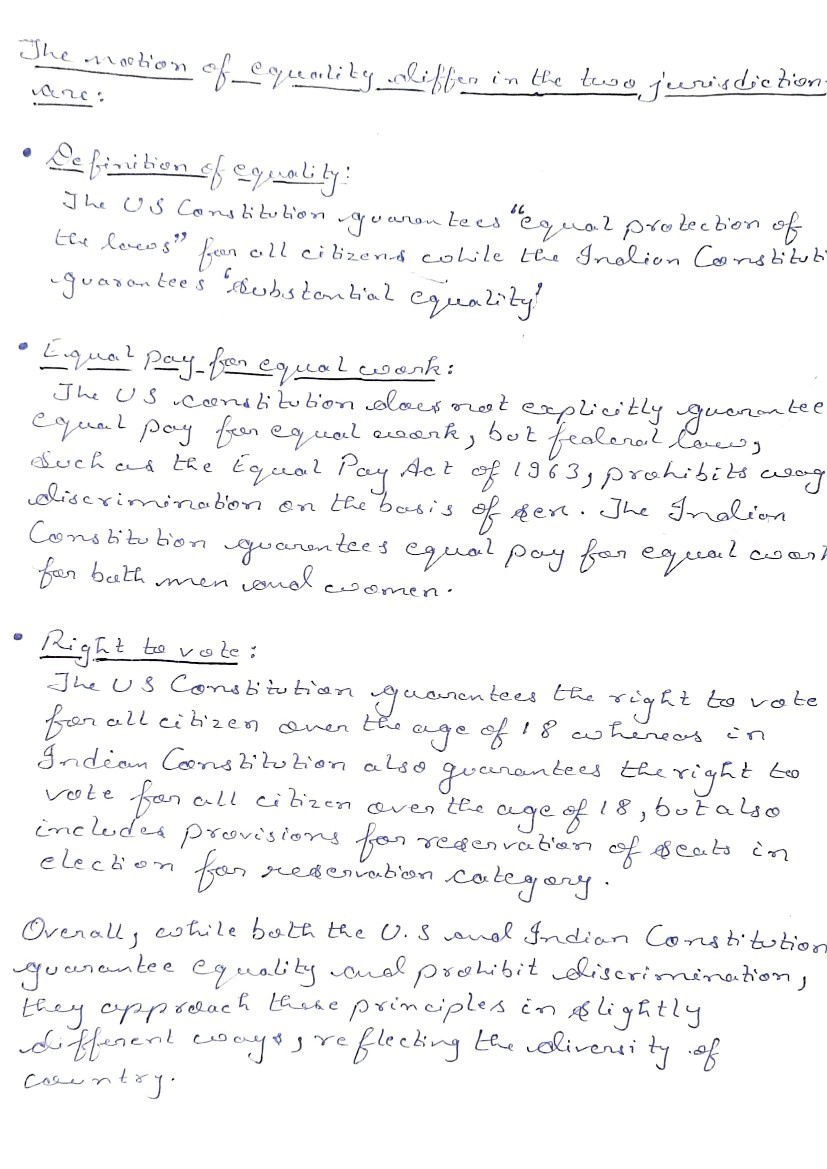 The notion of equality differ in the two jurisdiction
are:
• Definition of equality:
The US Constitution guarantees "equal protection of
the laws" for all citizens while the Indian Constituti
guarantees 'substantial equality'
• Equal pay for equal work:
The US constitution does not explicitly guarantee
equal pay for equal work, but federal laws,
such as the Equal Pay Act of 1963, prohibits wag
discrimination on the basis of sex. The Indian
Constitution guarantees equal pay for equal wor
for both men and women.
• Right to vote:
The US Constitution guarantees the right to vote
for all citizen over the age of 18 whereas in
Indian Constitution also guarantees the right to
vote for all citizen over the age of 18, but also
includes provisions for reservation of seats in
election for reservation category.
Overall, while both the U.S and Indian Constitution
guarantee equality and prohibit discrimination,
they approach these principles in slightly
different ways, reflecting the diversity of
country.